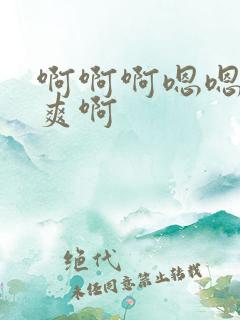 啊啊啊嗯嗯
爽啊
绝代
未经同意禁止转载